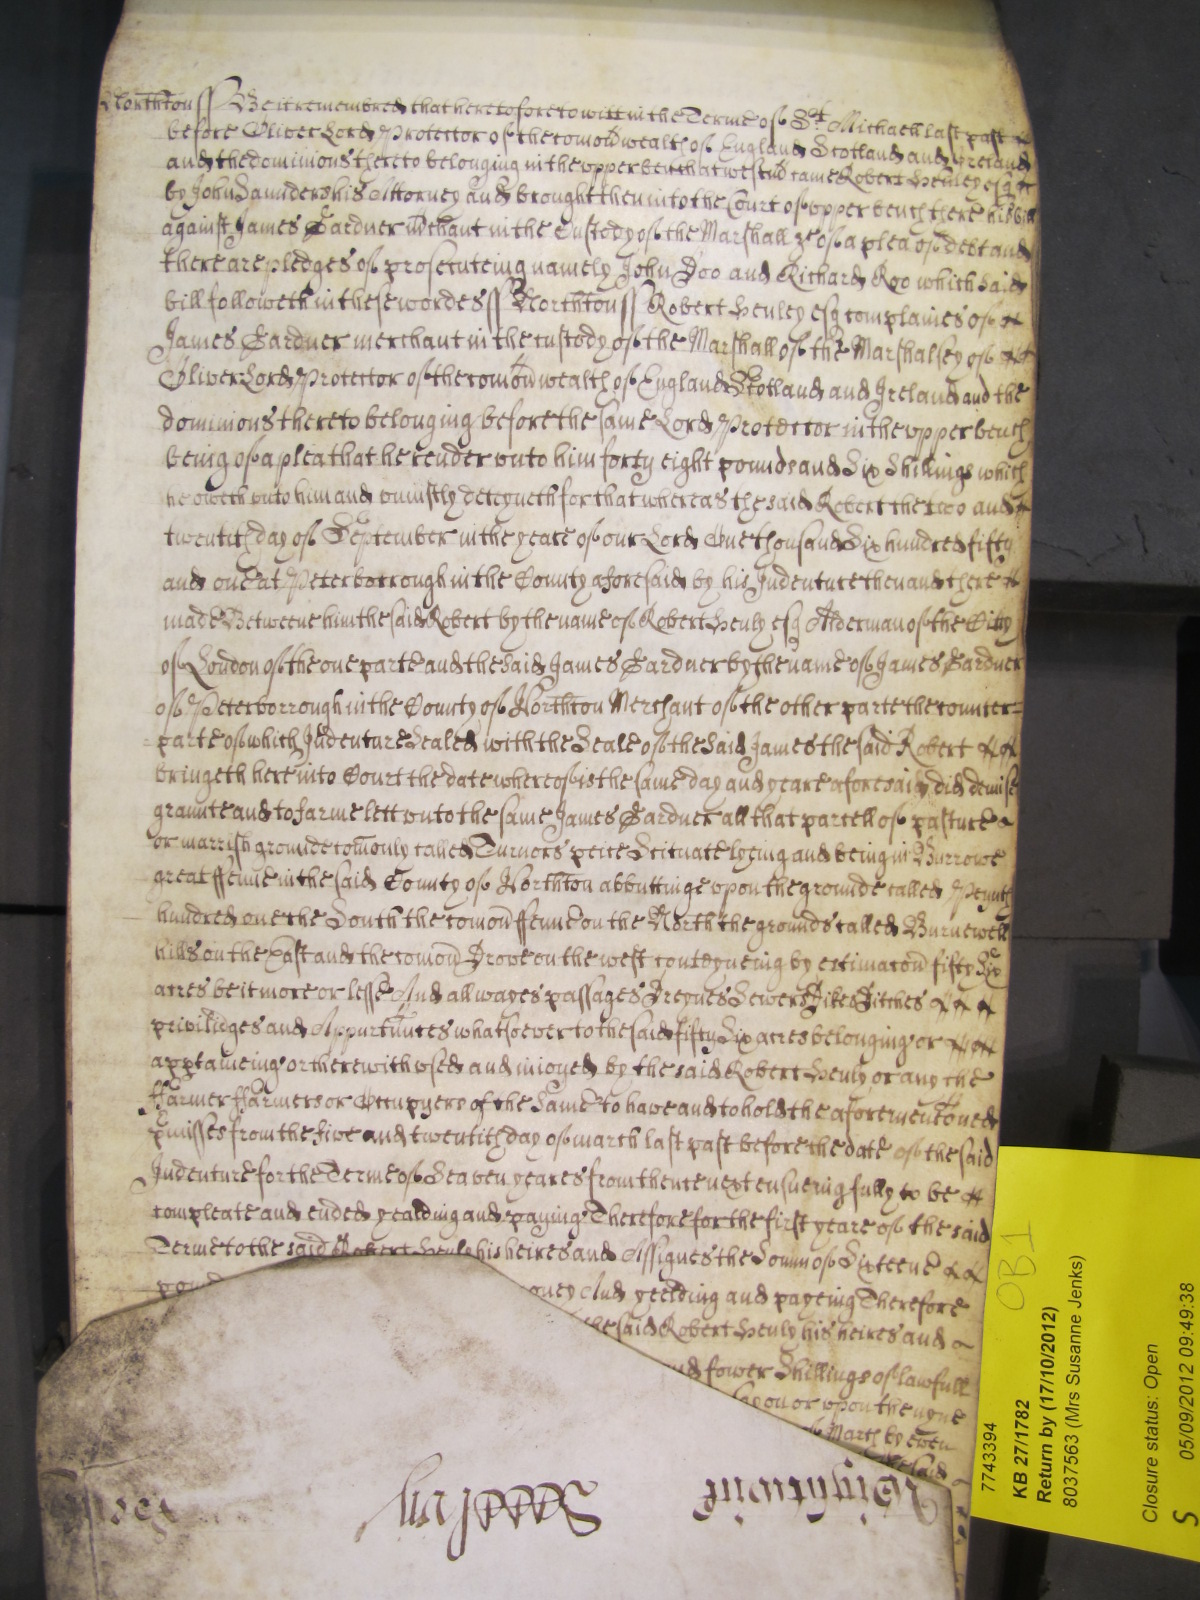 Northton ss Be it remembred that heretofore to witt in the Terme of St Michaell last past
before Oliver Lord Protector of the comon wealth of England Scotland and Ireland
and the dominions thereto belonging in the upper bench at westmr came Robert Henley esqr
by John Saunders his Attorney and brought then into the Court of upper bench there his bill
against James Gardner Mchant in the Custody of the Marshall &c of a plea of debt and
there are pledges of prosecuteing namely John Doo and Richard Roo which said
bill followeth in these wordes ss Northton ss Robert Henley esq complaines of
James Gardner merchant in the custody of the Marshall of the Marshalsey of
Oliver Lord Protector of the comon wealth of England Scotland and Ireland and the
dominions thereto belonging before the same Lord Protector in the upper bench
being of a plea that he render unto him forty eight pounds and Six Shillings which
he oweth unto him and uniustly deteyneth for that whereas the said Robert the two and
twentith day of September in the yeare of our Lord One thousand Six hundred fifty
and one at Peterborrough in the County aforesaid by his Indenture then and there
made Betweene him the said Robert by the name of Robert Henly esq Alderman of the Citty
of London of the one parte and the said James Gardner by the name of James Gardner
of Peterborrough in the County of Northton Merchant of the other parte the counter=
parte of which Indenture Sealed with the Seale of the said James the said Robert
bringeth here into Court the date whereof is the same day and yeare aforesaid did demise
graunte and to farme lett unto the same James Gardner all that parcell of pasture
or marrish grounde comonly called Turners peice Scituate lyeing and being in Burrowe
great ffenne in the said County of Northton abbuttinge upon the grounde called
hundred one the South the comon ffenne on the North the grounds called Burnewell
hills on the East and the comon Drove on the west conteyneing by estimacon fifty Six
acres be it more or lesse And all wayes passages Dreynes Sewers Dikes Ditches
priviledges and Appurtunces whatsoever to the said fifty Six acres belonging or
apptaineing or therewith used and inioyed by the said Robert Henly or any the
ffarmer ffarmers or Occupyers of the Same to have and to hold the aforementoned
pmisses from the five and twentith day of march last past before the date of the said
Indenture for the Terme of Seaven yeares from thence next ensueing fully to be
compleate and ended yealding and paying Therefore for the first yeare of the said
Terme to the said Robert Henly his heires and Assignes the Somm of Sixteene
And yeelding and payeing Therefore
the said Robert Henly his heires and
and fower Shillings of lawfull
or upon the nyne
of March by even
said
Wightwick
OB1
7743394
KB 27/1782
Return by (17/10/2012)
8037563 (Mrs Susanne Jenks)
Closure status: Open
S 05/09/2012 09:49:38